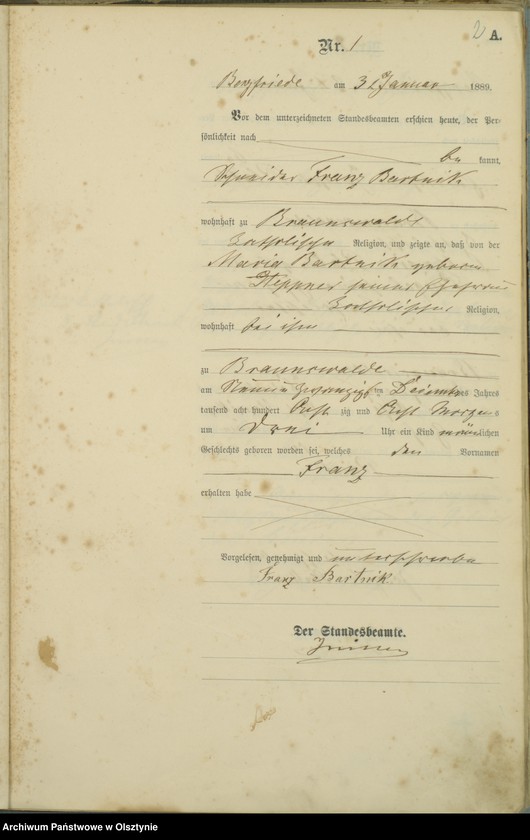 2 A.
Nr. 1
Bergfriede am 3ᵗ Januar 1889.
Vor dem unterzeichneten Standesbeamten erschien heute, der Per-
sönlichkeit nach
be kannt,
Schneider Franz Bartnik
wohnhaft zu Braunswalde
katholischer Religion, und zeigte an, daß von der
Maria Bartnik geborene
Heppner seiner Ehefrau
katholischer Religion,
wohnhaft bei ihm
zu Braunswalde
am zwanzigsten December des Jahres
tausend acht hundert Acht zig und Acht Morgens
um drei Uhr ein Kind männlichen
Geschlechts geboren worden sei, welches den Vornamen
Franz
erhalten habe
Vorgelesen, genehmigt und unterschrieben
Franz Bartnik
Der Standesbeamte.
Archiwum Państwowe w Olsztynie